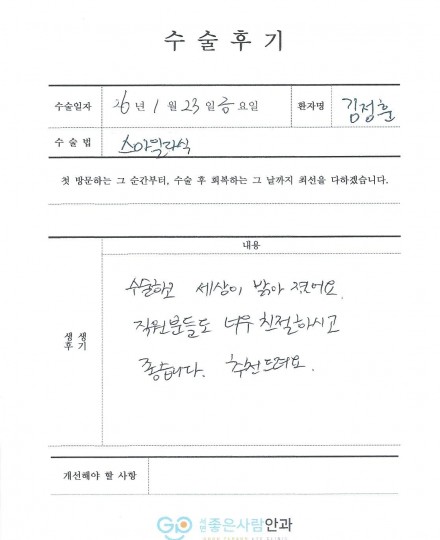 수술후기
수술일자 26년 1월 23일 금요일 환자명 김정훈
수술법 스마일라식
첫 방문하는 그 순간부터, 수술 후 회복하는 그 날까지 최선을 다하겠습니다.
내용
생생
후기
수술하고 세상이 밝아 졌어요.
직원분들도 너무 친절하시고
좋습니다. 추천드려요.
개선해야 할 사항
GP 서면 좋은사람안과
GOOD PERSON EYE CLINIC